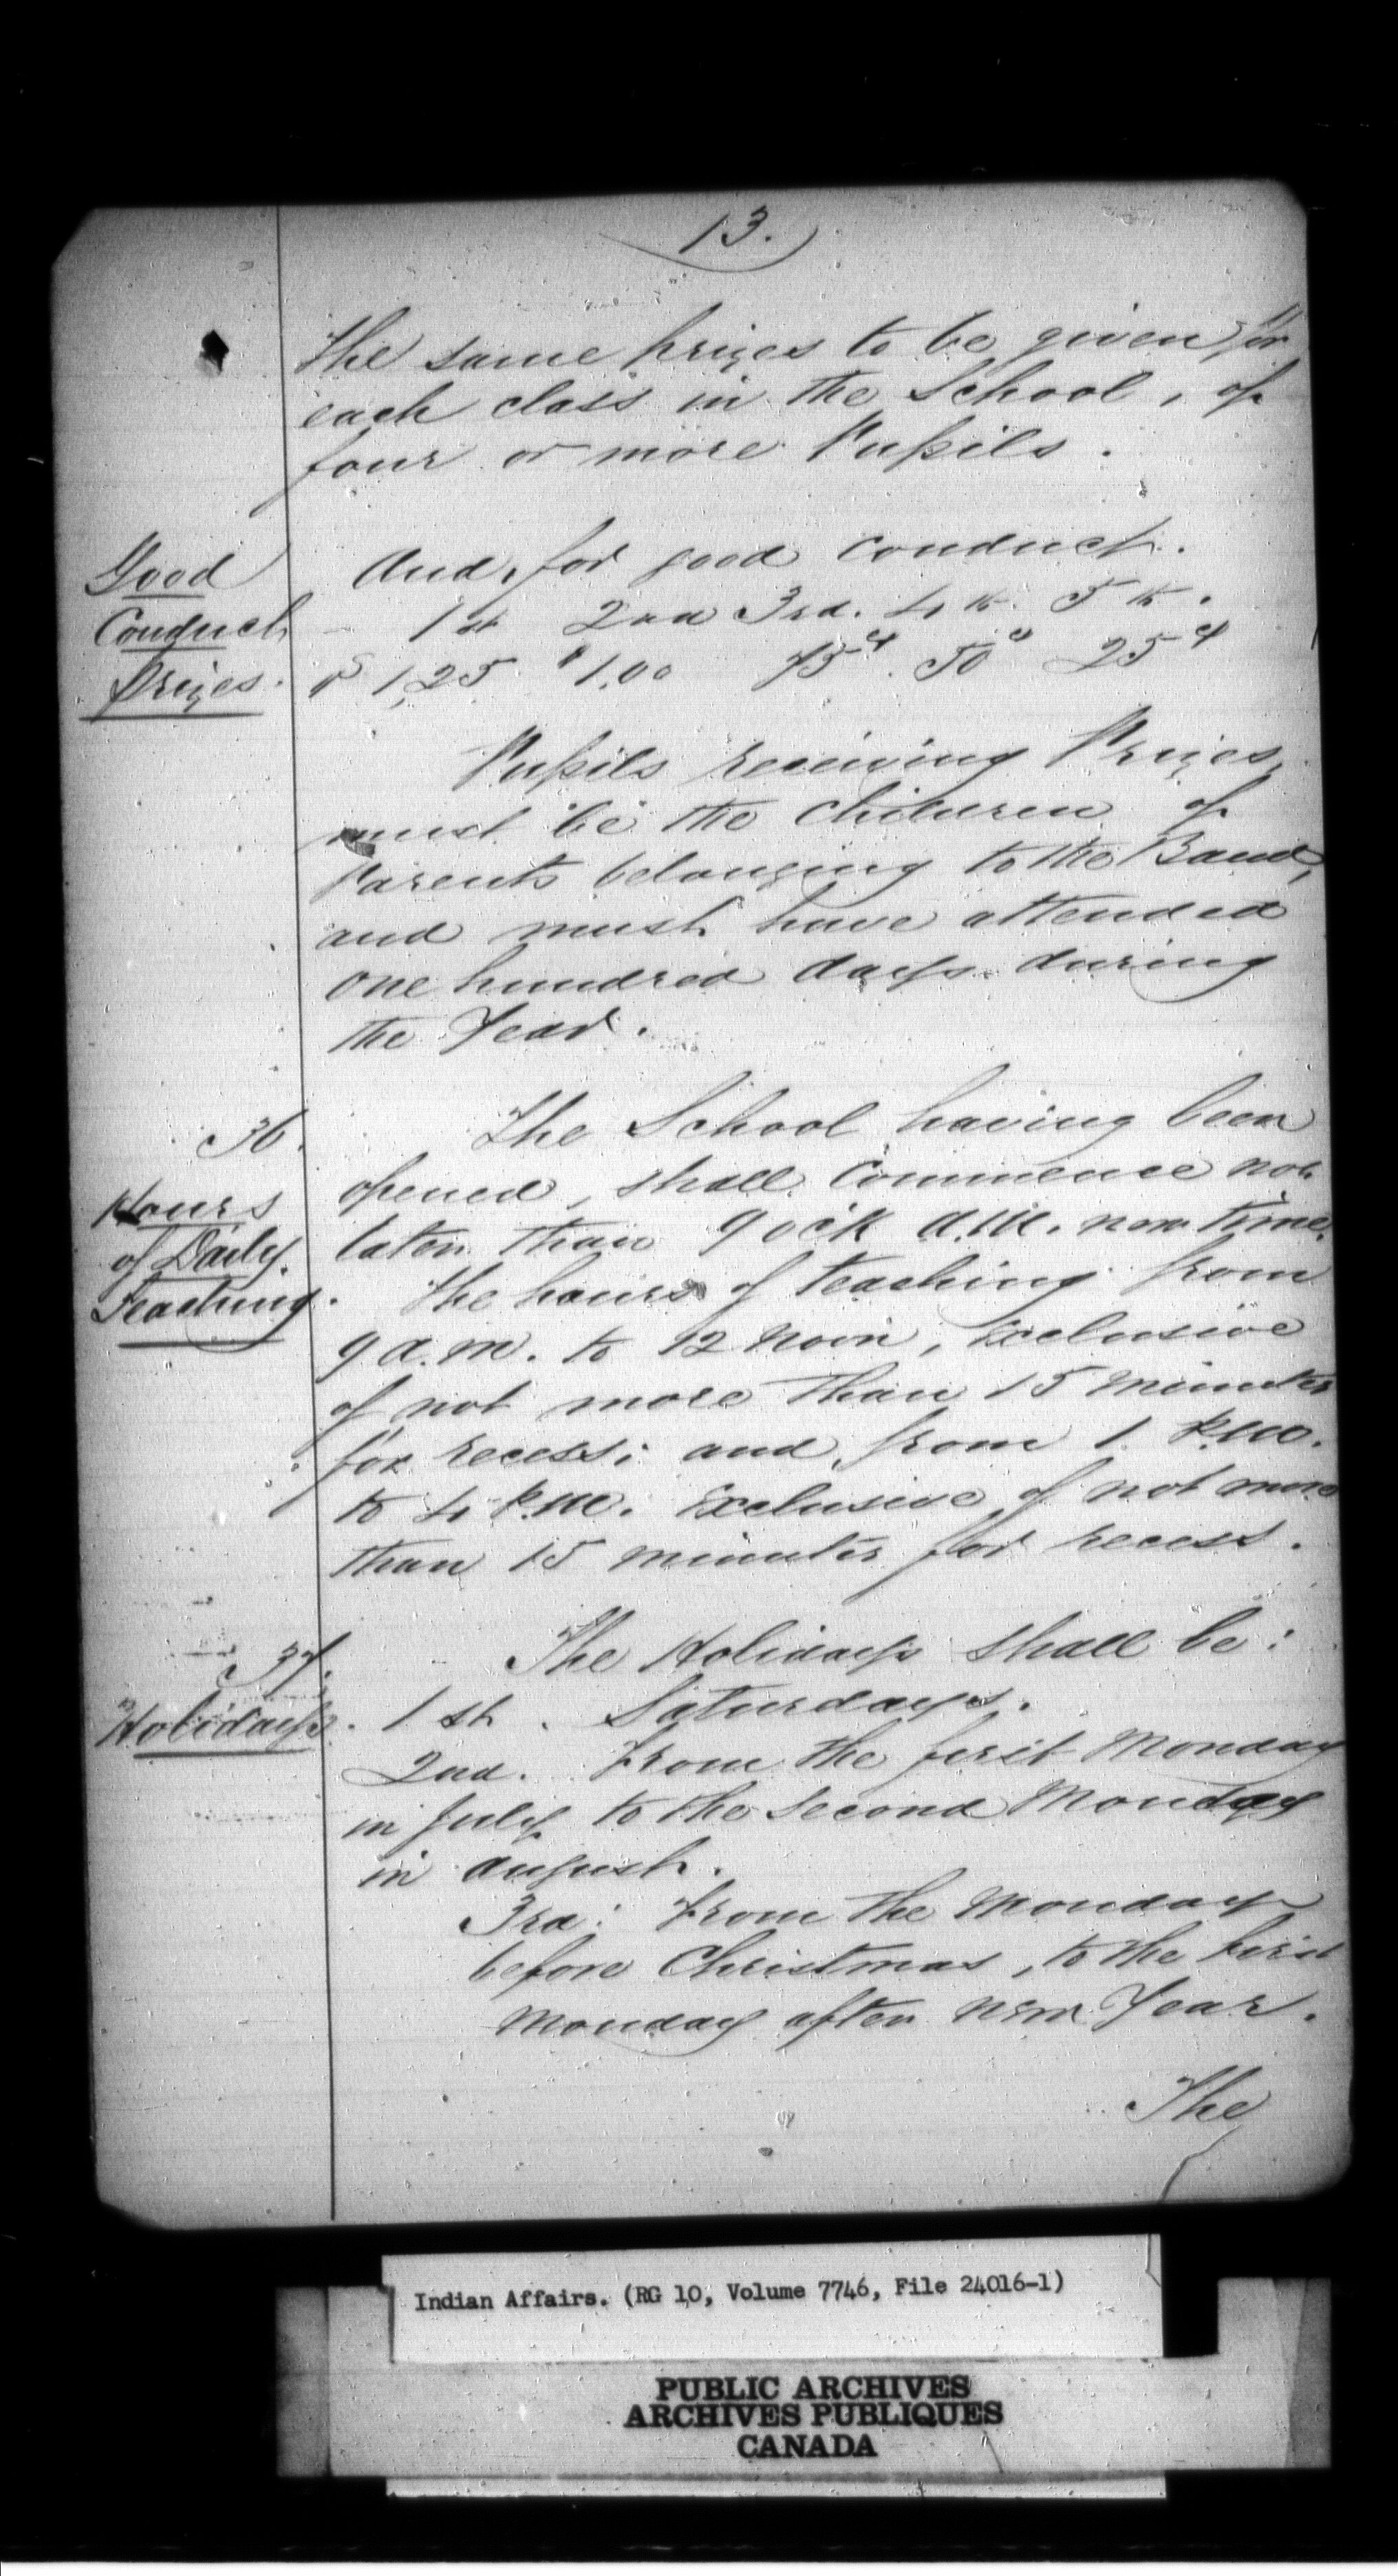 13.
the same prizes to be given for
each class in the School, of
four or more Pupils.
Good
Conduct
Prizes.
And, for good conduct.
1st 2nd 3rd. 4th. 5th.
$1,25 $1.00 75cts. 50c 25cts
Pupils receiving Prizes
must be the children of
Parents belonging to the Band,
and must have attended
one hundred days during
the Year.
36.
Hours
of Daily
Teaching.
The School having been
opened, shall commence not
later than 9 ock A.M. new time.
The hours of teaching from
9 a.m. to 12 noon, exclusive
of not more than 15 minutes
for recess; and from 1. P.M.
to 4 P.M. Exclusive of not more
than 15 minutes for recess.
37.
Holidays.
The Holidays shall be:
1st. Saturdays.
2nd. From the first Monday
in July to the second Monday
in august.
3rd: From the Monday
before Christmas, to the first
Monday after New Year.
The
Indian Affairs. (RG 10, Volume 7746, File 24016-1)
PUBLIC ARCHIVES
ARCHIVES PUBLIQUES
CANADA